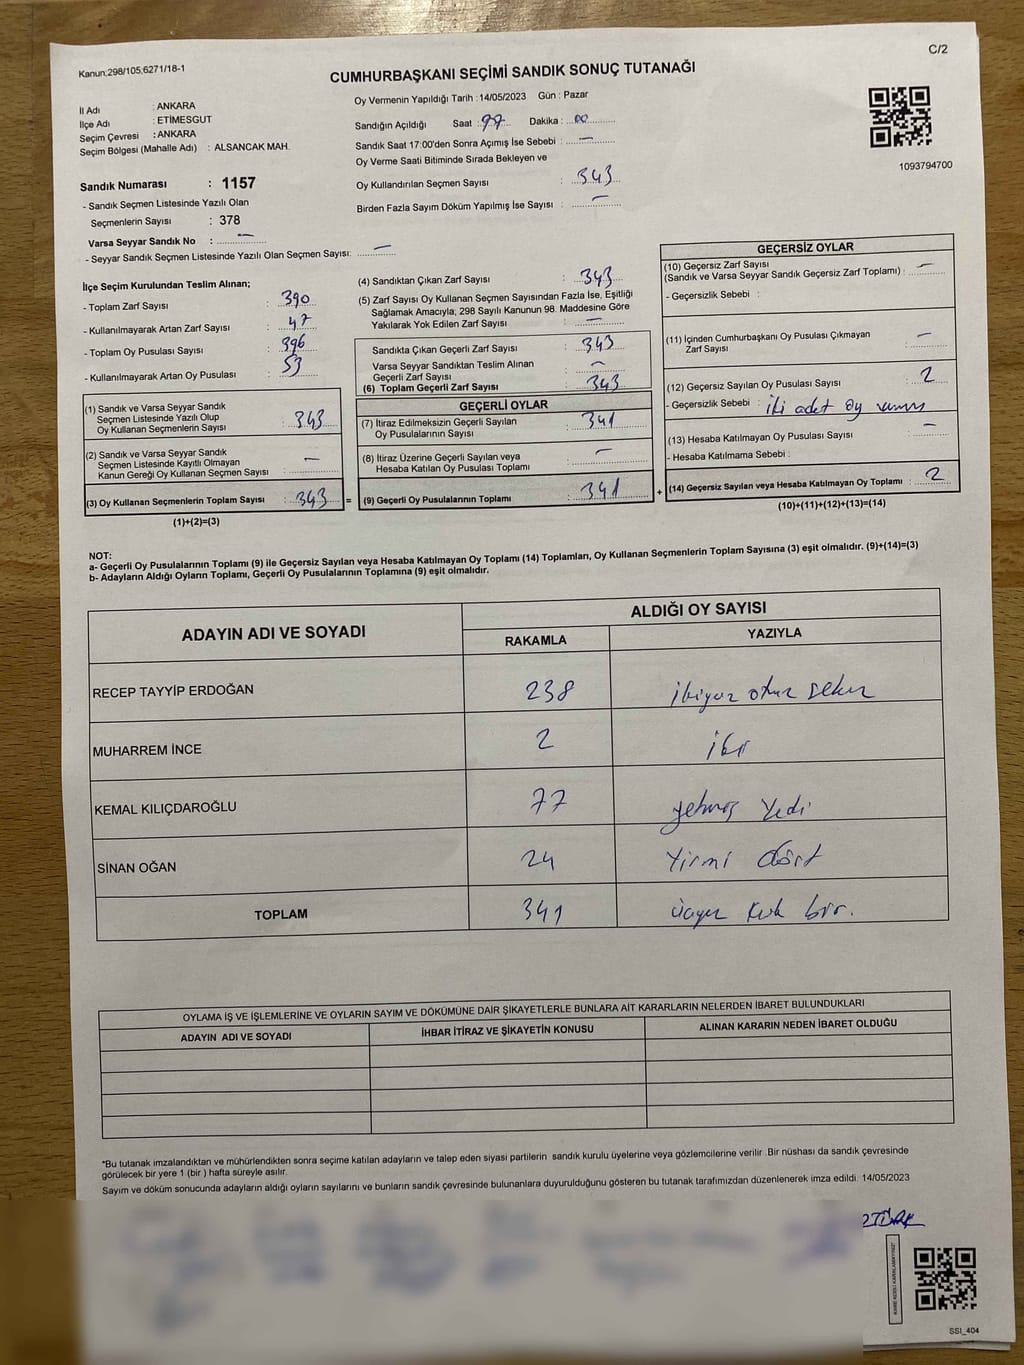 Kanun:298/105,6271/18-1
C/2
CUMHURBAŞKANI SEÇİMİ SANDIK SONUÇ TUTANAĞI
İl Adı : ANKARA
İlçe Adı : ETİMESGUT
Seçim Çevresi : ANKARA
Seçim Bölgesi (Mahalle Adı) : ALSANCAK MAH.
Oy Vermenin Yapıldığı Tarih : 14/05/2023 Gün : Pazar
Sandığın Açıldığı Saat : Dakika : 00
Sandık Saat 17:00'den Sonra Açımış İse Sebebi : —
Oy Verme Saati Bitiminde Sırada Bekleyen ve
Oy Kullandırılan Seçmen Sayısı : 343
Birden Fazla Sayım Döküm Yapılmış İse Sayısı : —
1093794700
Sandık Numarası : 1157
- Sandık Seçmen Listesinde Yazılı Olan
Seçmenlerin Sayısı : 378
Varsa Seyyar Sandık No : —
- Seyyar Sandık Seçmen Listesinde Yazılı Olan Seçmen Sayısı: —
İlçe Seçim Kurulundan Teslim Alınan;
- Toplam Zarf Sayısı : 390
- Kullanılmayarak Artan Zarf Sayısı : 47
- Toplam Oy Pusulası Sayısı : 396
- Kullanılmayarak Artan Oy Pusulası : 53
(1) Sandık ve Varsa Seyyar Sandık
Seçmen Listesinde Yazılı Olup
Oy Kullanan Seçmenlerin Sayısı : 343
(2) Sandık ve Varsa Seyyar Sandık
Seçmen Listesinde Kayıtlı Olmayan
Kanun Gereği Oy Kullanan Seçmen Sayısı : —
(3) Oy Kullanan Seçmenlerin Toplam Sayısı : 343 =
(1)+(2)=(3)
(4) Sandıktan Çıkan Zarf Sayısı : 343
(5) Zarf Sayısı Oy Kullanan Seçmen Sayısından Fazla İse, Eşitliği
Sağlamak Amacıyla, 298 Sayılı Kanunun 98. Maddesine Göre
Yakılarak Yok Edilen Zarf Sayısı : —
Sandıkta Çıkan Geçerli Zarf Sayısı : 343
Varsa Seyyar Sandıktan Teslim Alınan
Geçerli Zarf Sayısı : —
(6) Toplam Geçerli Zarf Sayısı : 343
GEÇERLİ OYLAR
(7) İtiraz Edilmeksizin Geçerli Sayılan
Oy Pusulalarının Sayısı : 341
(8) İtiraz Üzerine Geçerli Sayılan veya
Hesaba Katılan Oy Pusulası Toplamı : —
(9) Geçerli Oy Pusulalarının Toplamı : 341 +
GEÇERSİZ OYLAR
(10) Geçersiz Zarf Sayısı
(Sandık ve Varsa Seyyar Sandık Geçersiz Zarf Toplamı) : —
- Geçersizlik Sebebi :
(11) İçinden Cumhurbaşkanı Oy Pusulası Çıkmayan
Zarf Sayısı : —
(12) Geçersiz Sayılan Oy Pusulası Sayısı : 2
- Geçersizlik Sebebi : iki adet oy
(13) Hesaba Katılmayan Oy Pusulası Sayısı : —
- Hesaba Katılmama Sebebi :
(14) Geçersiz Sayılan veya Hesaba Katılmayan Oy Toplamı : 2
(10)+(11)+(12)+(13)=(14)
NOT:
a- Geçerli Oy Pusulalarının Toplamı (9) ile Geçersiz Sayılan veya Hesaba Katılmayan Oy Toplamı (14) Toplamları, Oy Kullanan Seçmenlerin Toplam Sayısına (3) eşit olmalıdır. (9)+(14)=(3)
b- Adayların Aldığı Oyların Toplamı, Geçerli Oy Pusulalarının Toplamına (9) eşit olmalıdır.
ADAYIN ADI VE SOYADI
ALDIĞI OY SAYISI
RAKAMLA YAZIYLA
RECEP TAYYİP ERDOĞAN 238 ikiyüz otuz sekiz
MUHARREM İNCE 2 iki
KEMAL KILIÇDAROĞLU 77 yetmiş yedi
SİNAN OĞAN 24 yirmi dört
TOPLAM 341 üçyüz kırk bir.
OYLAMA İŞ VE İŞLEMLERİNE VE OYLARIN SAYIM VE DÖKÜMÜNE DAİR ŞİKAYETLERLE BUNLARA AİT KARARLARIN NELERDEN İBARET BULUNDUKLARI
ADAYIN ADI VE SOYADI İHBAR İTİRAZ VE ŞİKAYETİN KONUSU ALINAN KARARIN NEDEN İBARET OLDUĞU
*Bu tutanak imzalandıktan ve mühürlendikten sonra seçime katılan adayların ve talep eden siyasi partilerin sandık kurulu üyelerine veya gözlemcilerine verilir. Bir nüshası da sandık çevresinde
görülecek bir yere 1 (bir ) hafta süreyle asılır.
Sayım ve döküm sonucunda adayların aldığı oyların sayılarını ve bunların sandık çevresinde bulunanlara duyurulduğunu gösteren bu tutanak tarafımızdan düzenlenerek imza edildi. 14/05/2023
SSI_404